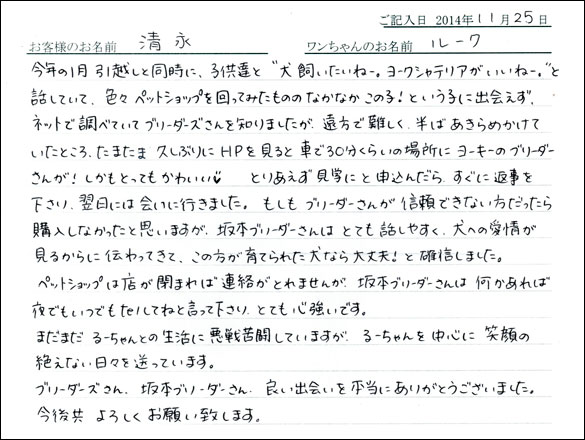 ご記入日 2014年11月25日
お客様のお名前 清永 ワンちゃんのお名前 ルーク
今年の1月 引越しと同時に、子供達と"犬飼いたいねー。ヨークシャテリアがいいねー。"と
話していて、色々ペットショップを回ってみたもののなかなかこの子!という子に出会えず、
ネットで調べていてブリーダーズさんを知りましたが、遠方で難しく、半ばあきらめかけて
いたところ、たまたま 久しぶりにHPを見ると車で30分くらいの場所にヨーキーのブリーダー
さんが!しかもとってもかわいい♥ とりあえず見学にと申込んだら、すぐに返事を
下さり、翌日には会いに行きました。もしもブリーダーさんが信頼できない方だったら
購入しなかったと思いますが、坂本ブリーダーさんはとても話しやすく、犬への愛情が
見るからに伝わってきて、この方が育てられた犬なら大丈夫!と確信しました。
ペットショップは店が閉まれば連絡がとれませんが、坂本ブリーダーさんは何かあれば
夜でもいつでもTELしてねと言って下さり、とても心強いです。
まだまだ るーちゃんとの生活に悪戦苦闘していますが、るーちゃんを中心に笑顔の
絶えない日々を送っています。
ブリーダーズさん、坂本ブリーダーさん、良い出会いを本当にありがとうございました。
今後共 よろしくお願い致します。